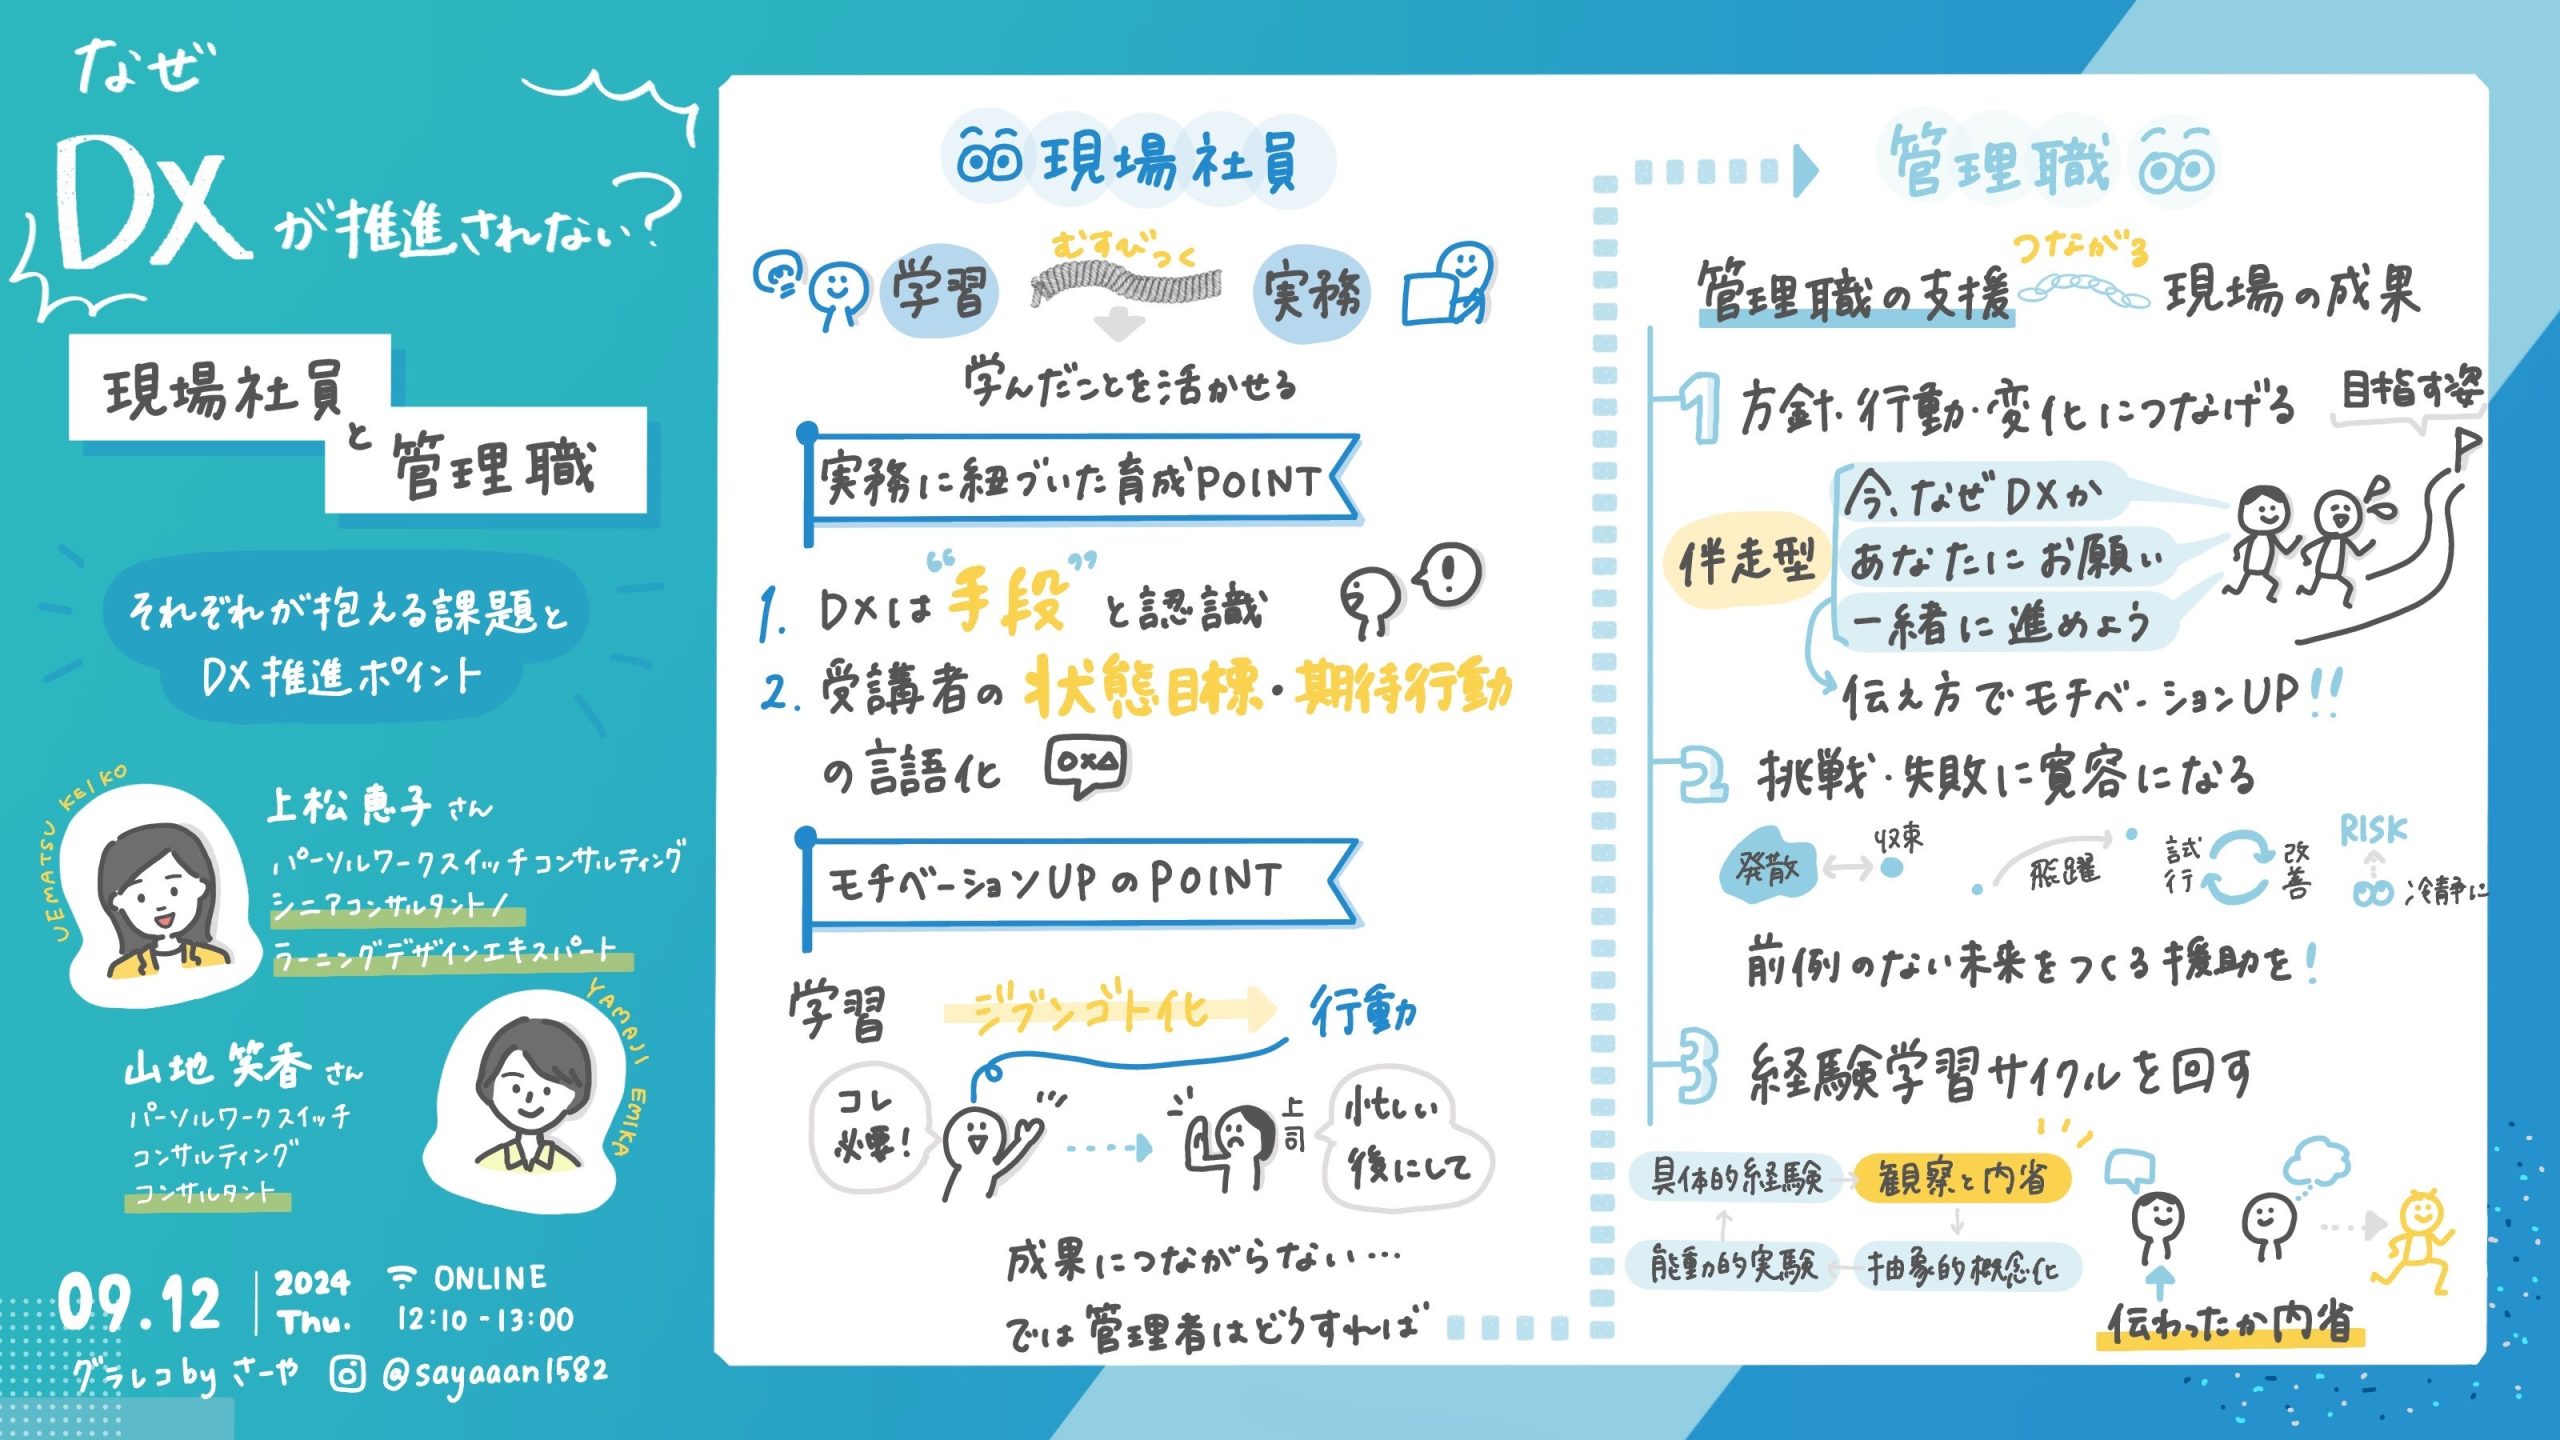 なぜ
DXが推進されない?
現場社員
と
管理職
それぞれが抱える課題と
DX推進ポイント
UEMATSU KEIKO
上松恵子さん
パーソルワークスイッチコンサルティング
シニアコンサルタント/
ラーニングデザインエキスパート
YAMAJI EMIKA
山地笑香さん
パーソルワークスイッチ
コンサルティング
コンサルタント
09.12
2024
Thu.
ONLINE
12:10-13:00
グラレコby さーや @sayaaan1582
現場社員
学習 むすびつく 実務
学んだことを活かせる
実務に紐づいた育成POINT
1. DXは“手段”と認識
2. 受講者の状態目標・期待行動
の言語化
○×△
モチベーションUPのPOINT
学習 ジブンゴト化 行動
コレ
必要!
上司
忙しい
後にして
成果につながらない…
では管理者はどうすれば
管理職
管理職の支援 つながる 現場の成果
1 方針・行動・変化につなげる
目指す姿
伴走型
今、なぜDXか
あなたにお願い
一緒に進めよう
伝え方でモチベーションUP!!
2 挑戦・失敗に寛容になる
発散
収束
飛躍
試行
改善
RISK
冷静に
前例のない未来をつくる援助を!
3 経験学習サイクルを回す
具体的経験
観察と内省
能動的実験
抽象的概念化
伝わったか内省